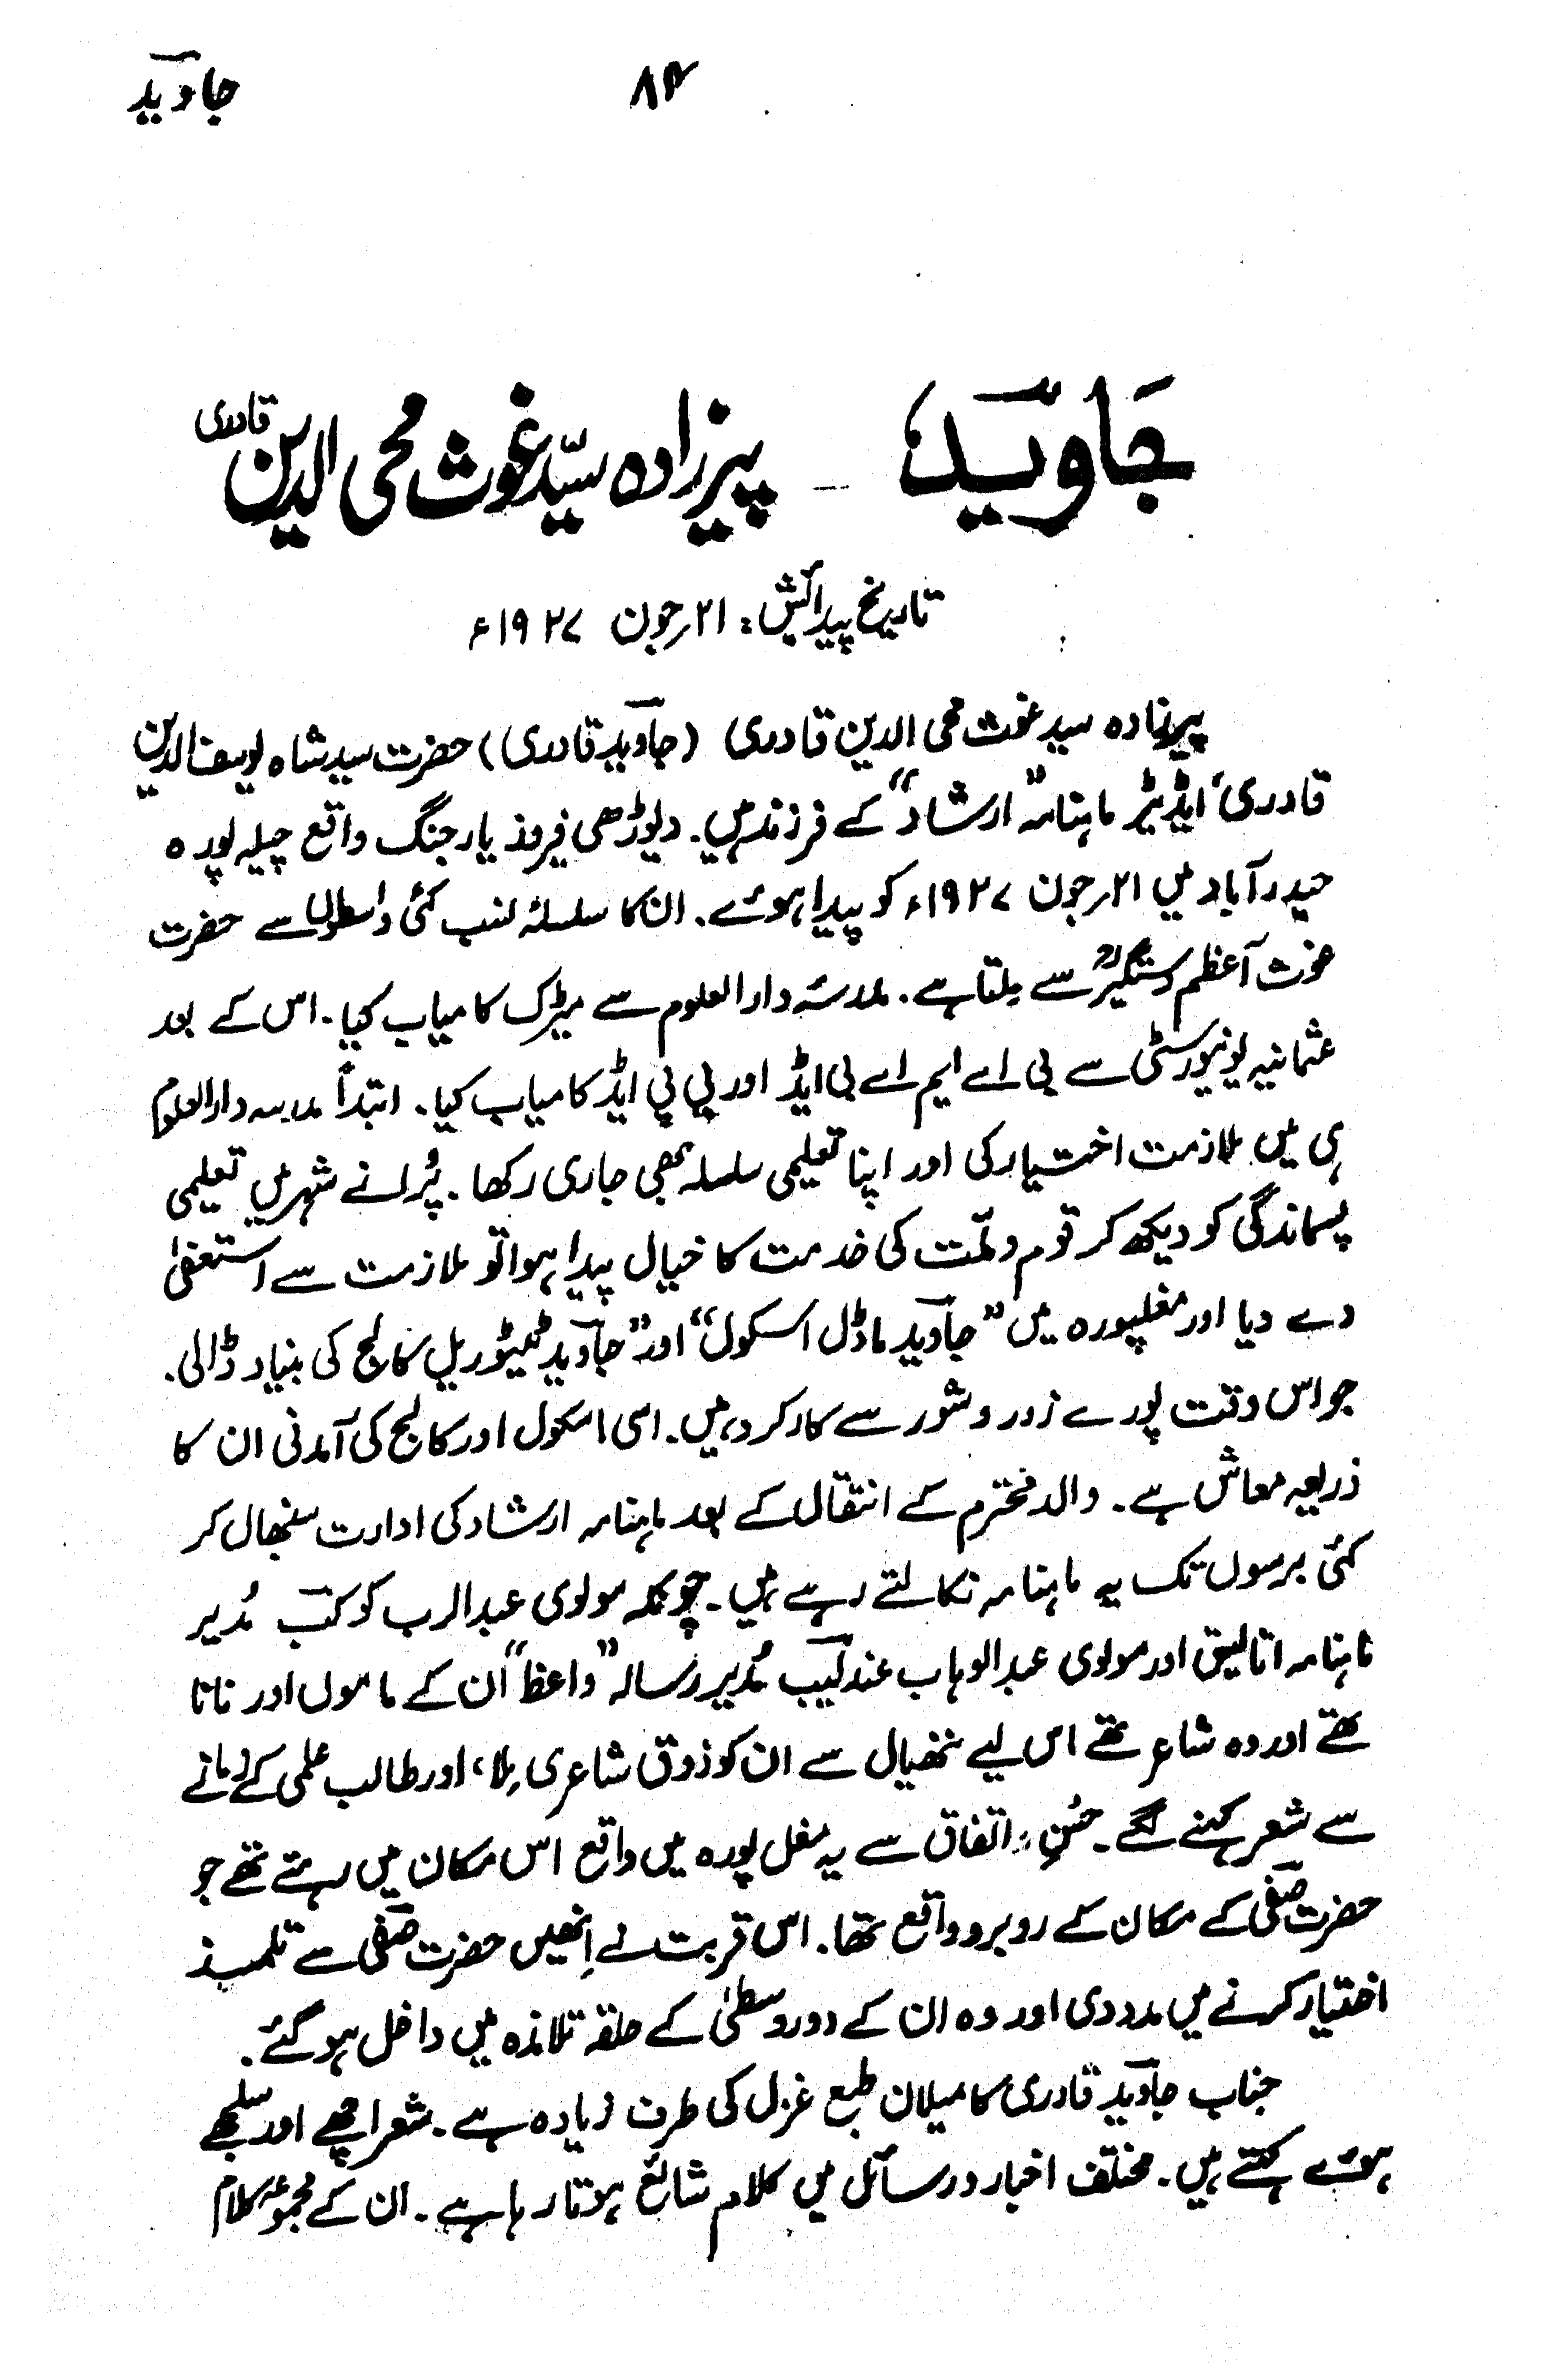 جاوید
۸۴
جاوید، ـ پیرزادہ سیّد غوث محی الدین قادری
تاریخ پیدائش: ۲۱؍جون ۱۹۲۷ء
پیرزادہ سید غوث محی الدین قادری (جاوید قادری) حضرت سید شاہ یوسف الدین
قادری، ایڈیٹر ماہنامہ "ارشاد" کے فرزند ہیں۔ دیوڑھی فیروز یار جنگ واقع چیلہ پورہ
حیدرآباد میں ۲۱؍جون ۱۹۲۷ء کو پیدا ہوئے۔ ان کا سلسلۂ نسب کئی واسطوں سے حضرت
غوث آعظم دستگیرؒ سے ملتا ہے۔ مدرسہ دارالعلوم سے میٹرک کامیاب کیا۔ اس کے بعد
عثمانیہ یونیورسٹی سے بی اے ایم اے بی ایڈ اور پی پی ایڈ کامیاب کیا۔ ابتداً مدرسہ دارالعلوم
ہی میں ملازمت اختیار کی اور اپنا تعلیمی سلسلہ بھی جاری رکھا۔ پُرانے شہر میں تعلیمی
پسماندگی کو دیکھ کر قوم و ملّت کی خدمت کا خیال پیدا ہوا تو ملازمت سے استعفیٰ
دے دیا اور مغلپورہ میں "جاوید ماڈل اسکول" اور "جاوید ٹیٹوریل کالج کی بنیاد ڈالی۔
جو اس وقت پورے زور و شور سے کارکرد ہیں۔ اسی اسکول اور کالج کی آمدنی ان کا
ذریعہ معاش ہے۔ والد محترم کے انتقال کے بعد ماہنامہ ارشاد کی ادارت سنبھال کر
کئی برسوں تک یہ ماہنامہ نکالتے رہے ہیں۔ چونکہ مولوی عبدالرب کوکب مُدیر
ماہنامہ اتالیق اور مولوی عبدالوہاب عندلیب مُدیر رسالہ "واعظ" ان کے ماموں اور نانا
تھے اور وہ شاعر تھے اس لیے ننھیال سے ان کو ذوق شاعری مِلا، اور طالب علمی کے زمانے
سے شعر کہنے لگے۔ حُسنِ اتفاق سے یہ مغل پورہ میں واقع اس مکان میں رہتے تھے جو
حضرت صفی کے مکان کے روبرو واقع تھا۔ اس قربت نے اِنھیں حضرت صفی سے تلمیذ
اختیار کرنے میں مدد دی اور وہ ان کے دور وسطیٰ کے حلقہ تلامذہ میں داخل ہو گئے۔
جناب جاوید قادری کا میلان طبع غزل کی طرف زیادہ ہے۔ شعر اچھے اور سلجھے
ہوئے کہتے ہیں۔ مختلف اخبار و رسائل میں کلام شائع ہوتا رہا ہے۔ ان کے مجموعۂ کلام